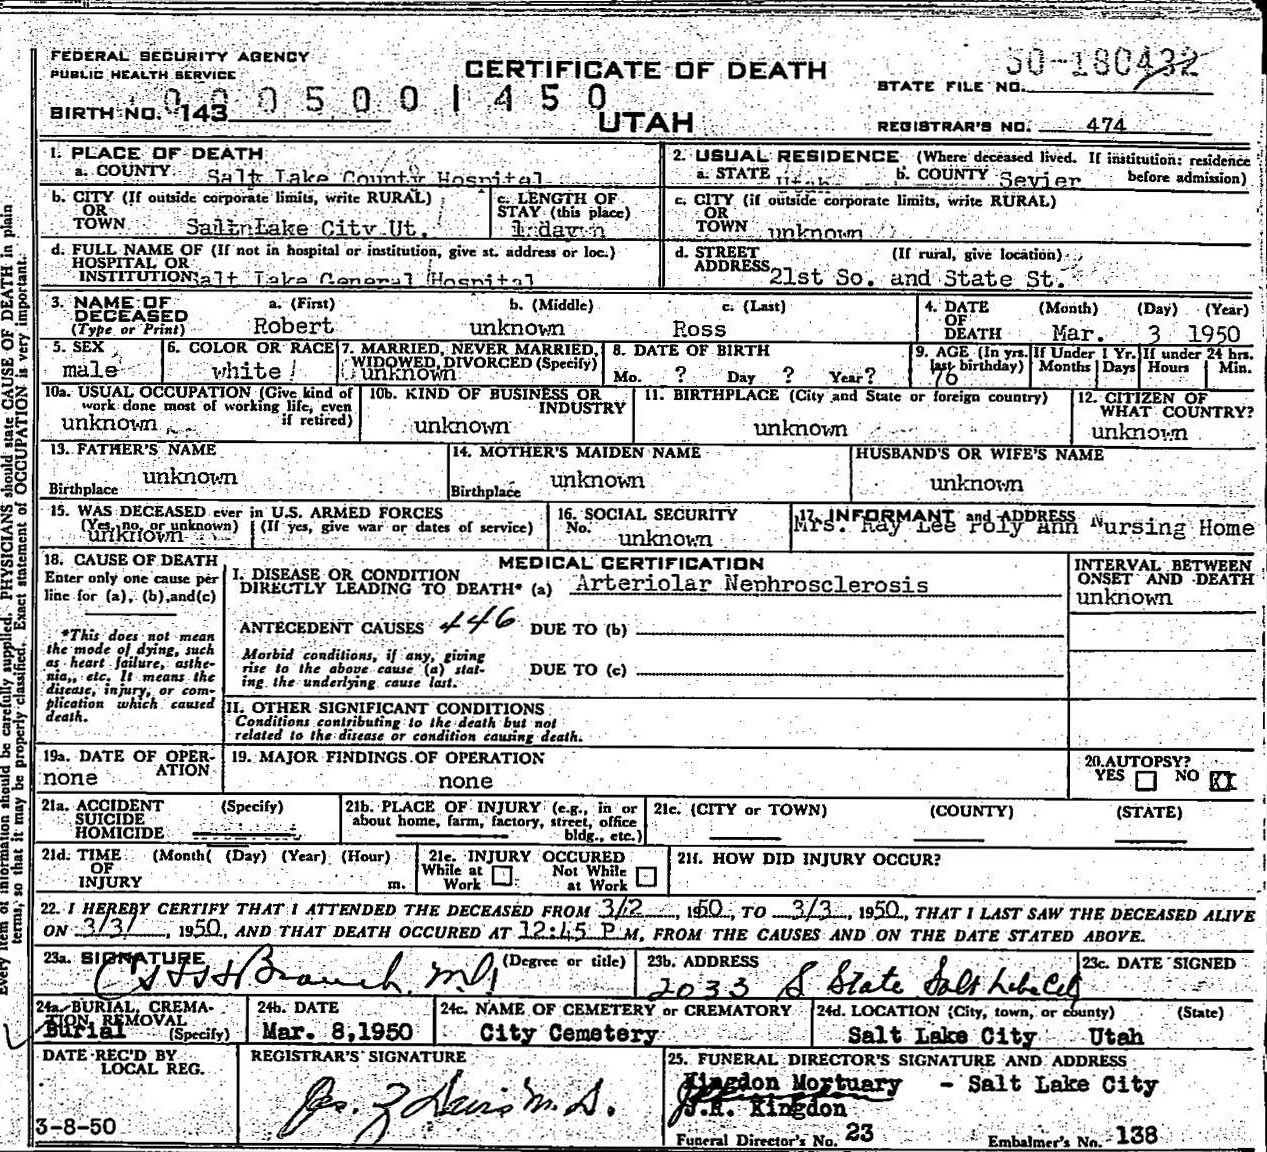 FEDERAL SECURITY AGENCY
PUBLIC HEALTH SERVICE
CERTIFICATE OF DEATH
50-180432
STATE FILE NO.
0005001450
BIRTH NO. 143
UTAH
REGISTRAR'S NO. 474
1. PLACE OF DEATH
a. COUNTY Salt Lake County Hospital
2. USUAL RESIDENCE (Where deceased lived. If institution: residence before admission)
a. STATE Utah b. COUNTY Sevier
b. CITY (If outside corporate limits, write RURAL)
OR
TOWN Salt Lake City Ut.
c. LENGTH OF
STAY (this place)
1 day
c. CITY (if outside corporate limits, write RURAL)
OR
TOWN unknown
d. FULL NAME OF (If not in hospital or institution, give st. address or loc.)
HOSPITAL OR
INSTITUTION Salt Lake General Hospital
d. STREET (If rural, give location)
ADDRESS 21st So. and State St.
3. NAME OF
DECEASED
(Type or Print)
a. (First) b. (Middle) c. (Last)
Robert unknown Ross
4. DATE (Month) (Day) (Year)
OF
DEATH Mar. 3 1950
5. SEX
male
6. COLOR OR RACE
white
7. MARRIED, NEVER MARRIED,
WIDOWED, DIVORCED (Specify)
unknown
8. DATE OF BIRTH
Mo. ? Day ? Year ?
9. AGE (In yrs.
last birthday)
76
If Under 1 Yr.
Months Days
If under 24 hrs.
Hours Min.
10a. USUAL OCCUPATION (Give kind of
work done most of working life, even
if retired)
unknown
10b. KIND OF BUSINESS OR
INDUSTRY
unknown
11. BIRTHPLACE (City and State or foreign country)
unknown
12. CITIZEN OF
WHAT COUNTRY?
unknown
13. FATHER'S NAME
unknown
Birthplace
14. MOTHER'S MAIDEN NAME
unknown
Birthplace
HUSBAND'S OR WIFE'S NAME
unknown
15. WAS DECEASED ever in U.S. ARMED FORCES
(Yes, no, or unknown) (If yes, give war or dates of service)
unknown
16. SOCIAL SECURITY
No. unknown
17. INFORMANT and ADDRESS
Mrs. Ray Lee Poly Ann Nursing Home
18. CAUSE OF DEATH
Enter only one cause per
line for (a), (b), and (c)
*This does not mean
the mode of dying, such
as heart failure, asthe-
nia, etc. It means the
disease, injury, or com-
plication which caused
death.
MEDICAL CERTIFICATION
I. DISEASE OR CONDITION
DIRECTLY LEADING TO DEATH* (a) Arteriolar Nephrosclerosis
ANTECEDENT CAUSES 446 DUE TO (b)
Morbid conditions, if any, giving
rise to the above cause (a) stat-
ing the underlying cause last.
DUE TO (c)
II. OTHER SIGNIFICANT CONDITIONS
Conditions contributing to the death but not
related to the disease or condition causing death.
INTERVAL BETWEEN
ONSET AND DEATH
unknown
19a. DATE OF OPER-
ATION
none
19. MAJOR FINDINGS OF OPERATION
none
20. AUTOPSY?
YES NO XX
21a. ACCIDENT (Specify)
SUICIDE
HOMICIDE
21b. PLACE OF INJURY (e.g., in or
about home, farm, factory, street, office
bldg., etc.)
21c. (CITY or TOWN) (COUNTY) (STATE)
21d. TIME (Month) (Day) (Year) (Hour)
OF
INJURY m.
21e. INJURY OCCURED
While at Work Not While at Work
21f. HOW DID INJURY OCCUR?
22. I HEREBY CERTIFY THAT I ATTENDED THE DECEASED FROM 3/2, 1950, TO 3/3, 1950, THAT I LAST SAW THE DECEASED ALIVE
ON 3/3/, 1950, AND THAT DEATH OCCURED AT 12:45 P M, FROM THE CAUSES AND ON THE DATE STATED ABOVE.
23a. SIGNATURE (Degree or title)
Branch M.D.
23b. ADDRESS
2033 S State Salt Lake City
23c. DATE SIGNED
24a. BURIAL, CREMA-
TION, REMOVAL
(Specify)
Burial
24b. DATE
Mar. 8, 1950
24c. NAME OF CEMETERY or CREMATORY
City Cemetery
24d. LOCATION (City, town, or county) (State)
Salt Lake City Utah
DATE REC'D BY
LOCAL REG.
3-8-50
REGISTRAR'S SIGNATURE
Jas. Z Davis M.D.
25. FUNERAL DIRECTOR'S SIGNATURE AND ADDRESS
Kingdon Mortuary - Salt Lake City
J.R. Kingdon
Funeral Director's No. 23 Embalmer's No. 138
Every item of information should be carefully supplied. PHYSICIANS should state CAUSE OF DEATH in plain
terms, so that it may be properly classified. Exact statement of OCCUPATION is very important.